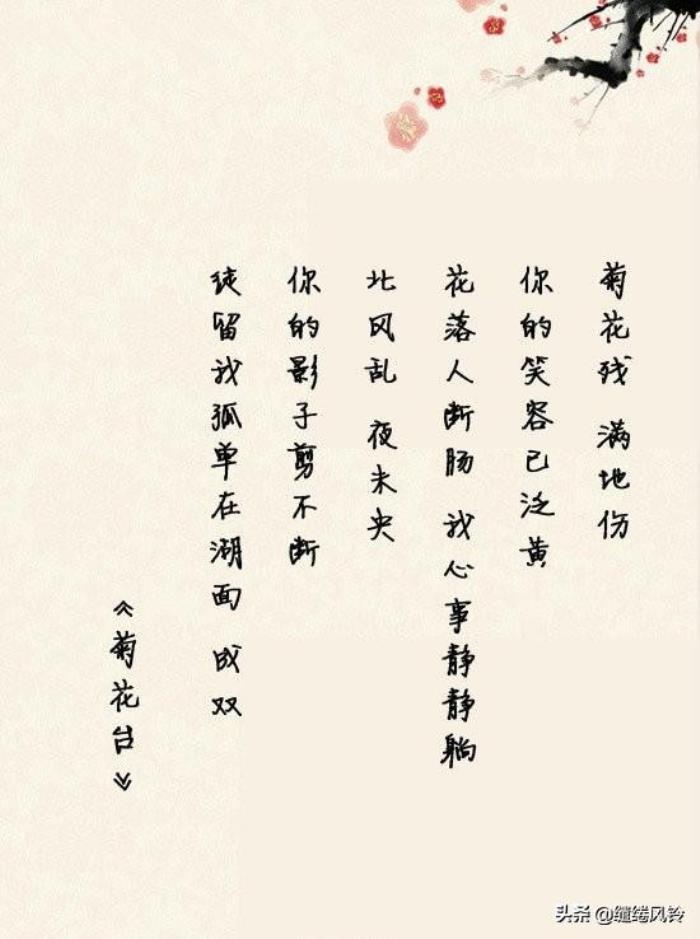 菊花残 满地伤
你的笑容已泛黄
花落人断肠 我心事静静躺
北风乱 夜未央
你的影子剪不断
徒留我孤单在湖面 成双
《菊花台》
头条 @缱绻风铃